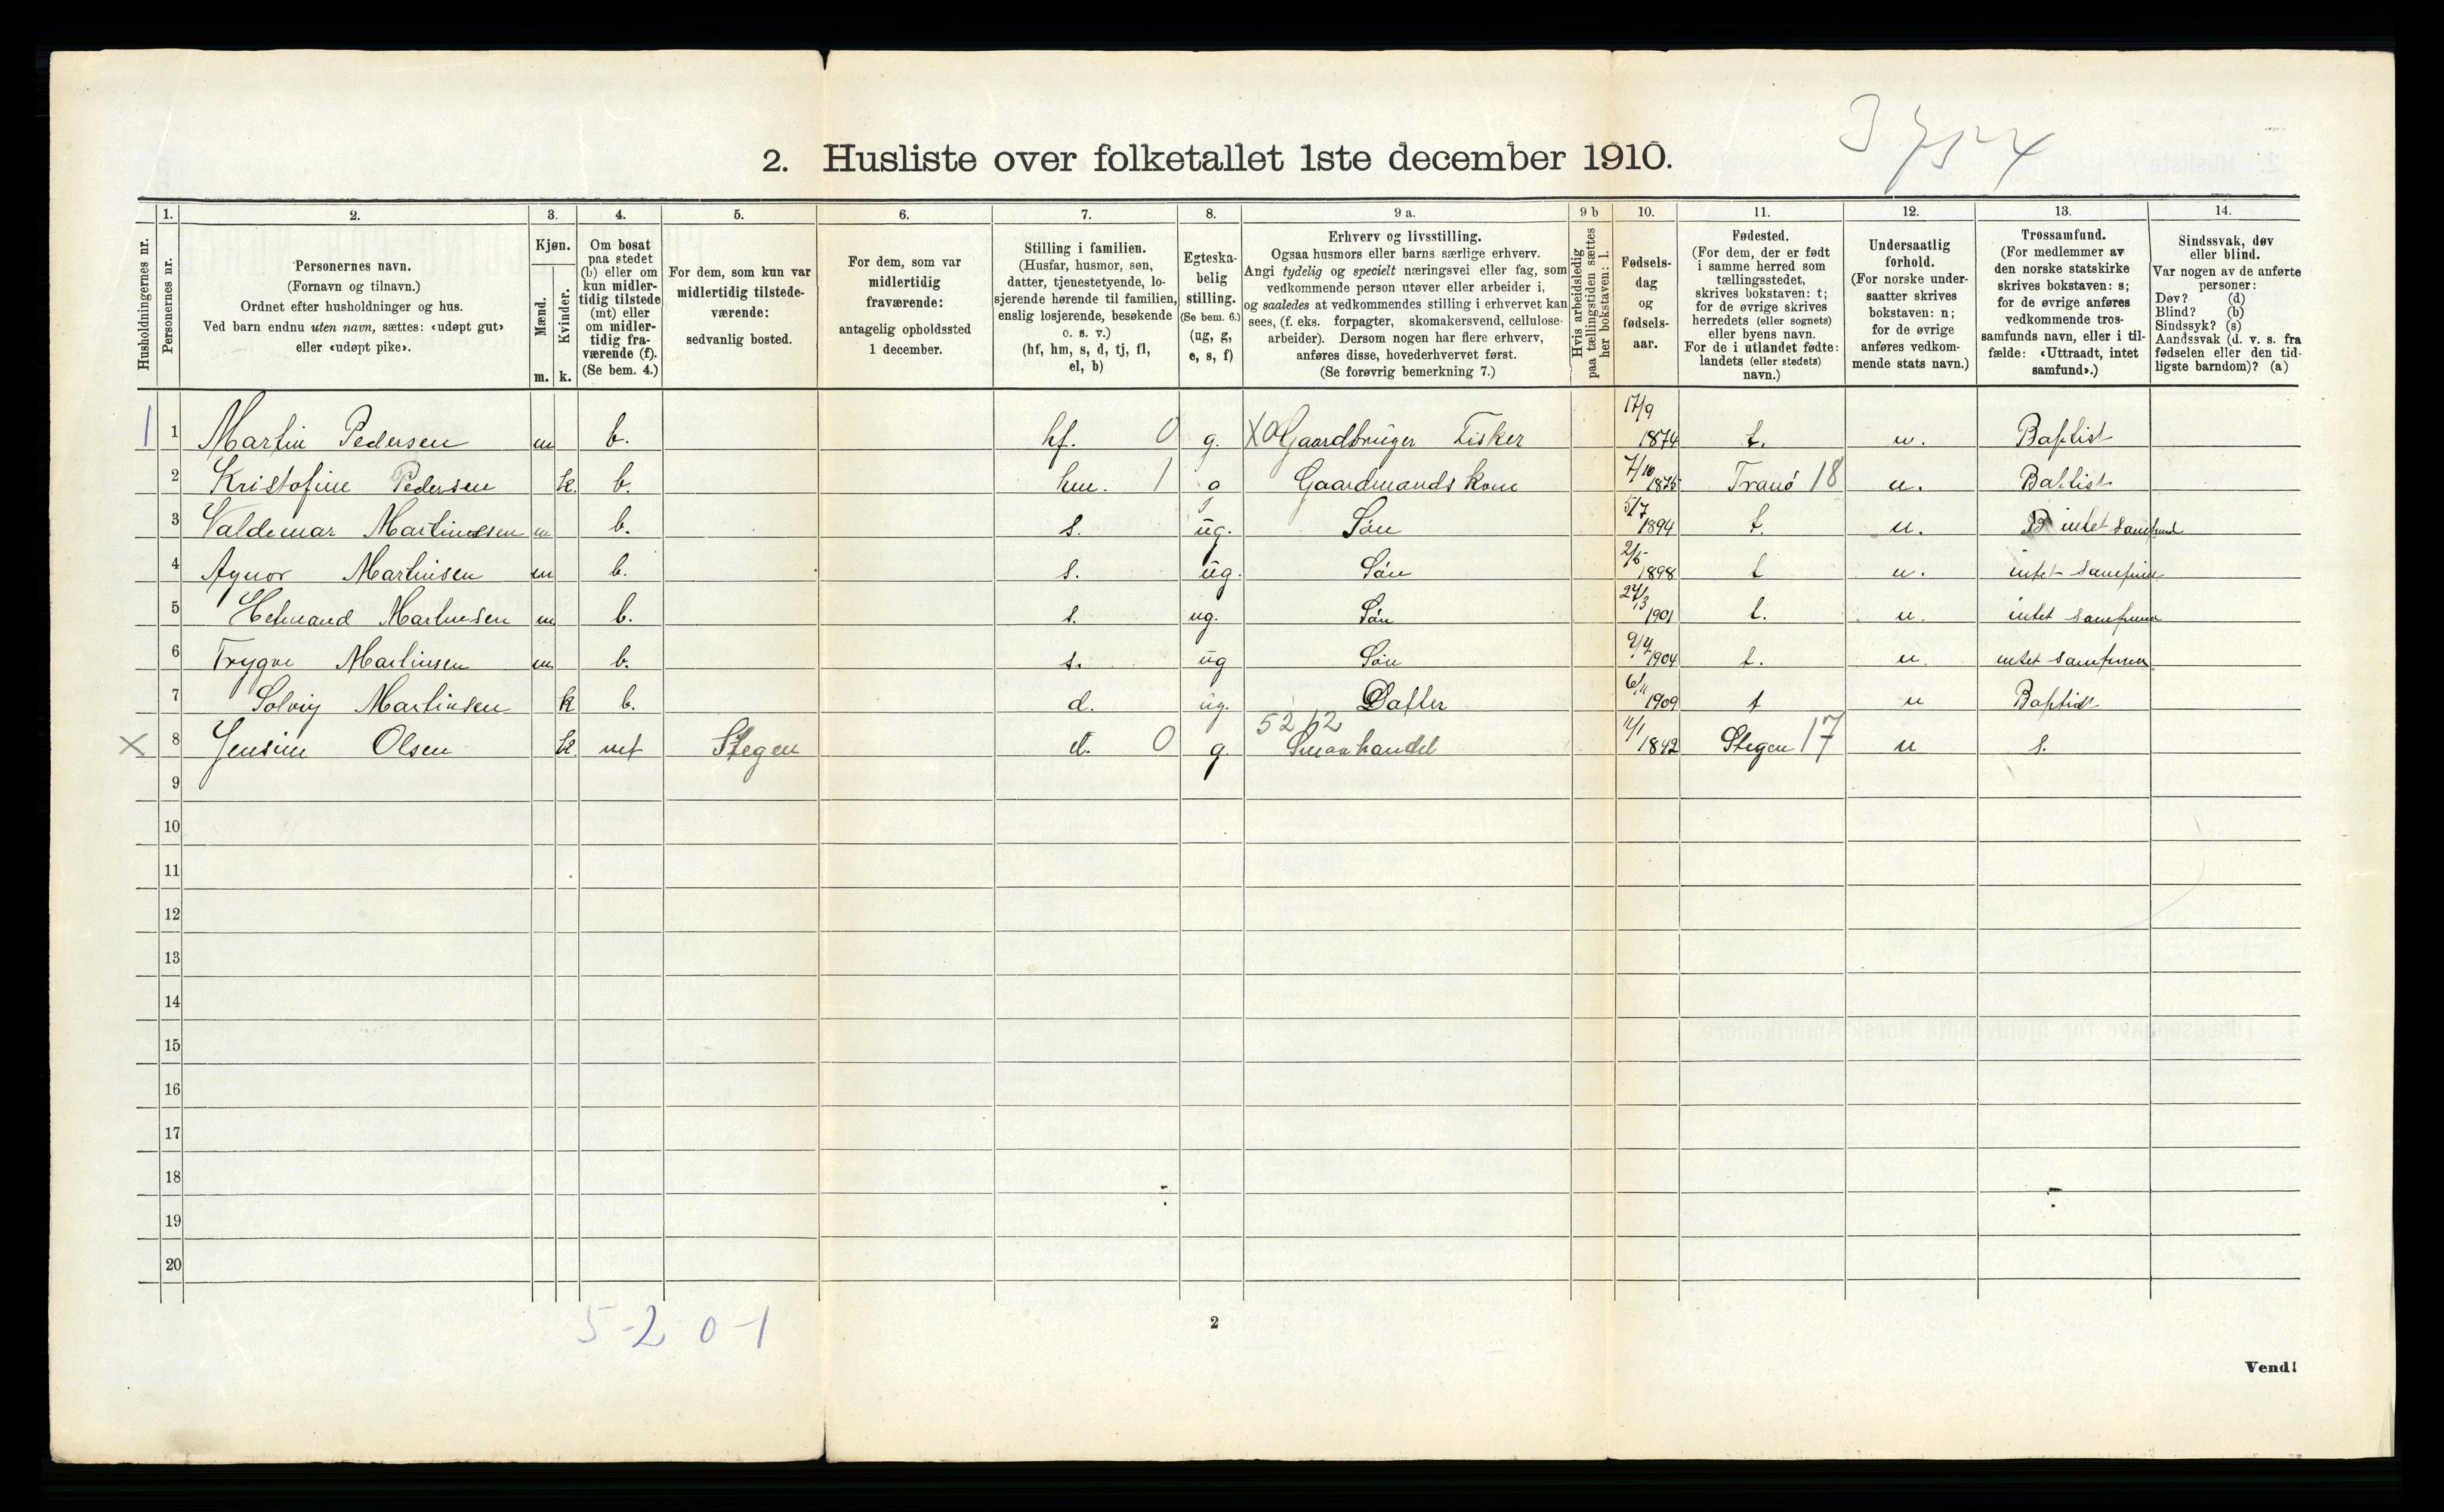 3754
2. Husliste over folketallet 1ste december 1910.
1. 2. 3. 4. 5. 6. 7. 8. 9 a. 9 b 10. 11. 12. 13. 14.
Husholdningernes nr.
Personernes nr.
Personernes navn.
(Fornavn og tilnavn.)
Ordnet efter husholdninger og hus.
Ved barn endnu uten navn, sættes: «udøpt gut»
eller «udøpt pike».
Kjøn.
Mænd.
Kvinder.
m. k.
Om bosat
paa stedet
(b) eller om
kun midler-
tidig tilstede
(mt) eller
om midler-
tidig fra-
værende (f).
(Se bem. 4.)
For dem, som kun var
midlertidig tilstede-
værende:
sedvanlig bosted.
For dem, som var
midlertidig
fraværende:
antagelig opholdssted
1 december.
Stilling i familien.
(Husfar, husmor, søn,
datter, tjenestetyende, lo-
sjerende hørende til familien,
enslig losjerende, besøkende
o. s. v.)
(hf, hm, s, d, tj, fl,
el, b)
Egteska-
belig
stilling.
(Se bem. 6.)
(ug, g,
e, s, f)
Erhverv og livsstilling.
Ogsaa husmors eller barns særlige erhverv.
Angi tydelig og specielt næringsvei eller fag, som
vedkommende person utøver eller arbeider i,
og saaledes at vedkommendes stilling i erhvervet kan
sees, (f. eks. forpagter, skomakersvend, cellulose-
arbeider). Dersom nogen har flere erhverv,
anføres disse, hovederhvervet først.
(Se forøvrig bemerkning 7.)
Hvis arbeidsledig
paa tællingstiden sættes
her bokstaven: l.
Fødsels-
dag
og
fødsels-
aar.
Fødested.
(For dem, der er født
i samme herred som
tællingsstedet,
skrives bokstaven: t;
for de øvrige skrives
herredets (eller sognets)
eller byens navn.
For de i utlandet fødte:
landets (eller stedets)
navn.)
Undersaatlig
forhold.
(For norske under-
saatter skrives
bokstaven: n;
for de øvrige
anføres vedkom-
mende stats navn.)
Trossamfund.
(For medlemmer av
den norske statskirke
skrives bokstaven: s;
for de øvrige anføres
vedkommende tros-
samfunds navn, eller i til-
fælde: «Uttraadt, intet
samfund».)
Sindssvak, døv
eller blind.
Var nogen av de anførte
personer:
Døv? (d)
Blind? (b)
Sindssyk? (s)
Aandssvak (d. v. s. fra
fødselen eller den tid-
ligste barndom)? (a)
1 1 Martin Pedersen m b. hf. 0 g. X0 Gaardbruger Fisker 17/9 1874 t. n. Baptist
2 Kristofine Pedersen k. b. hm. 1 g Gaardmands kone 7/10 1875 Tranö 18 n. Baptist
3 Valdemar Martinsen m b. s. ug. Sön 5/7 1894 t. n. intet samfund
4 Agnor Martinsen m b. s. ug. Sön 2/5 1898 t n. intet samfun
5 Martinsen m b. s. ug. Sön 24/3 1901 t. n. intet samfund
6 Trygve Martinsen m. b. s. ug Sön 9/4 1904 t. n. intet samfun
7 Solvig Martinsen k b. d. ug. Datter 6/11 1909 t n Baptist
X 8 Jensine Olsen k. mt Stegen d. 0 g 5212 Smaahandel 11/1 1842 Stegen 17 n s.
9
10
11
12
13
14
15
16
17
18
19
20
5-2 0-1
2
Vend!